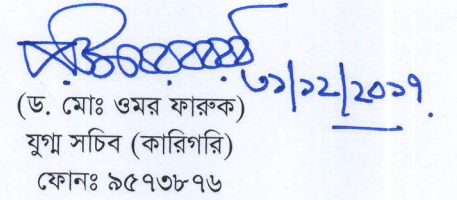 ৩১/১২/২০১৭
(ড. মোঃ ওমর ফারুক)
যুগ্ম সচিব (কারিগরি)
ফোনঃ ৯৫৭৩৮৭৬